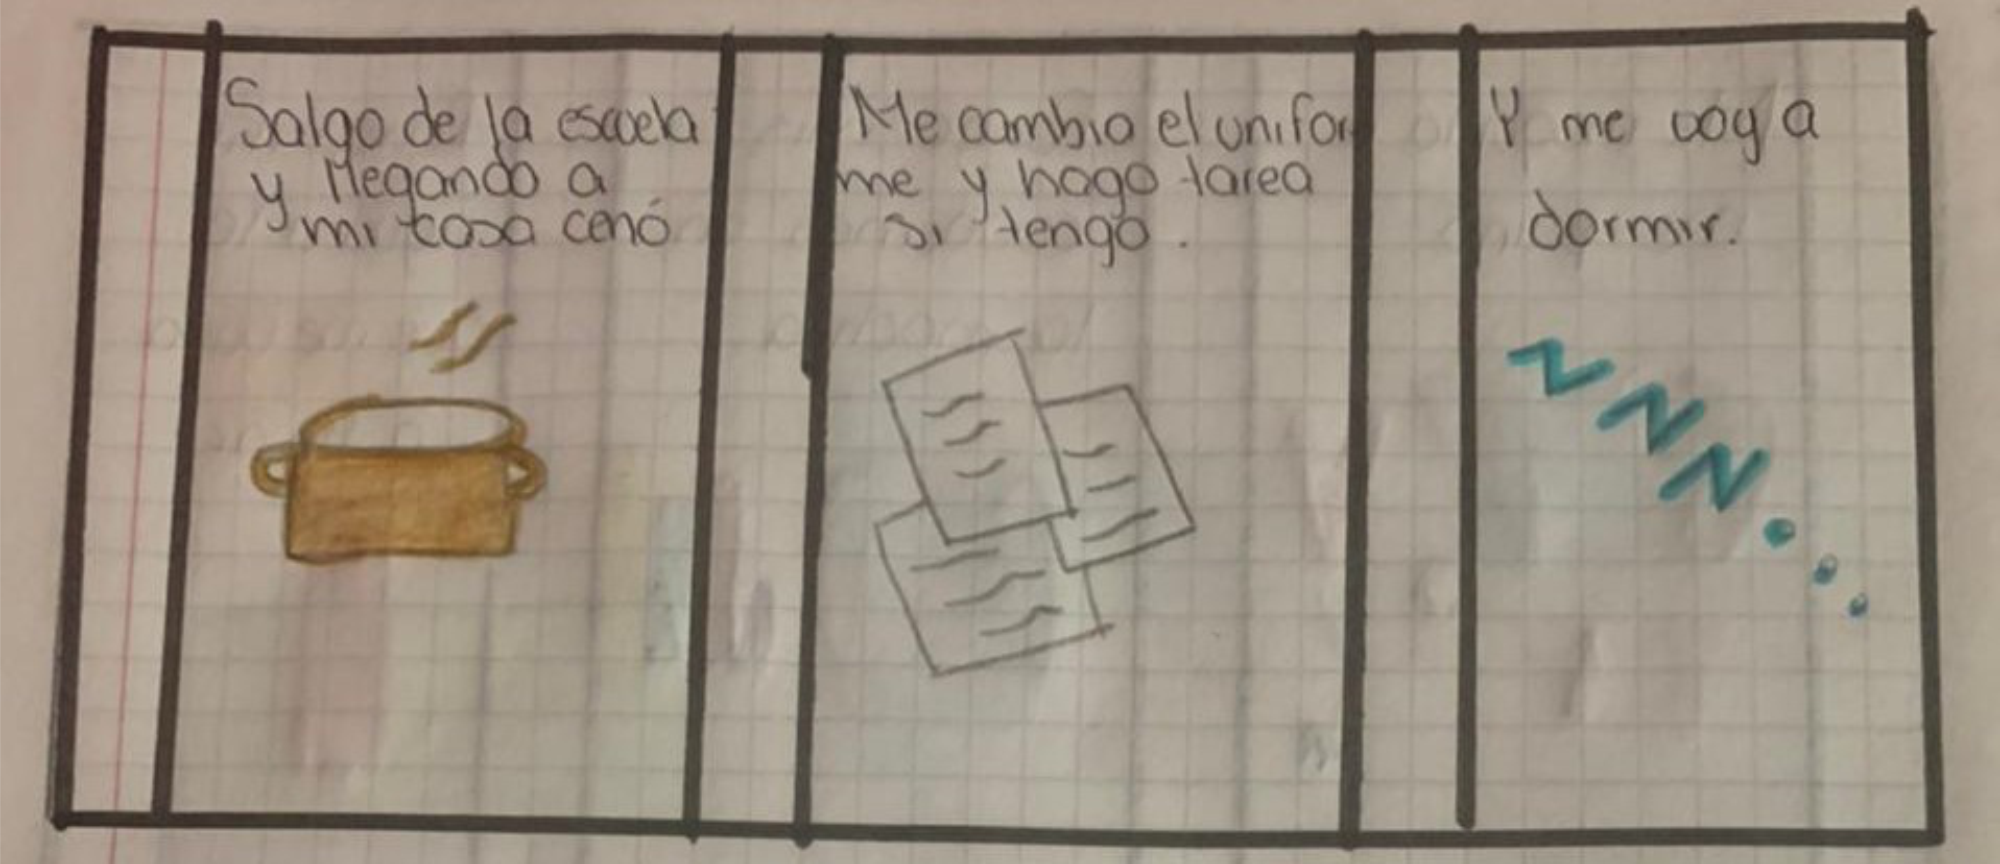 Salgo de la escuela
y llegando a
mi casa cenó
Me cambio el unifor
me y hago tarea
si tengo.
Y me voy a
dormir.
ZNN...